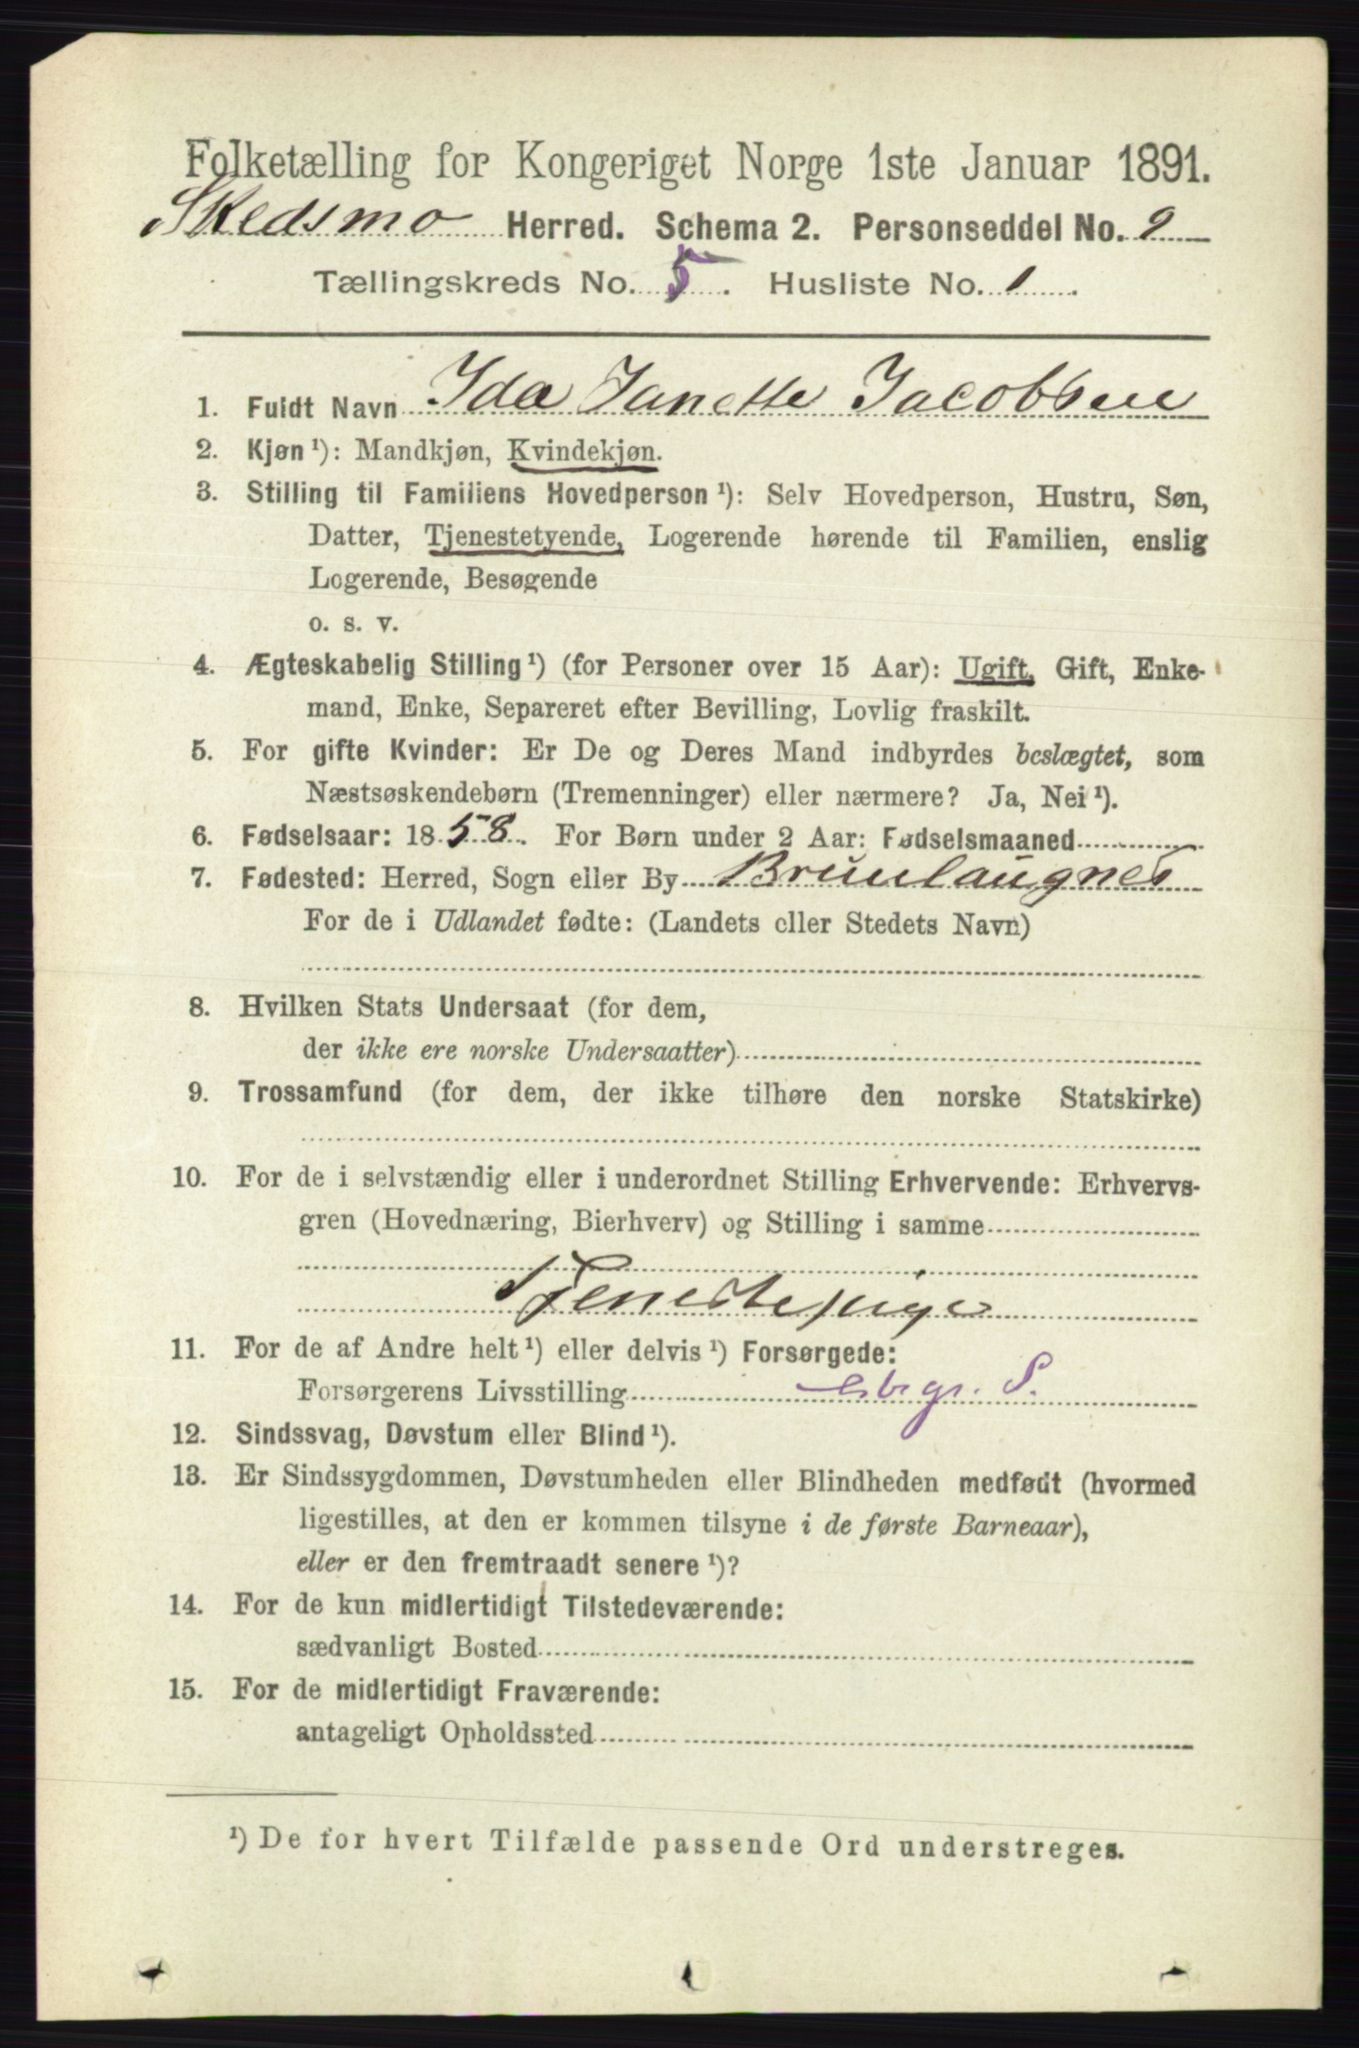 Folketælling for Kongeriget Norge 1ste Januar 1891.
Skedsmo Herred. Schema 2. Personseddel No. 9
Tællingskreds No. 5. Husliste No. 1.
1. Fuldt Navn Ida Janette Jacobsen
2. Kjøn¹): Mandkjøn, Kvindekjøn.
3. Stilling til Familiens Hovedperson¹): Selv Hovedperson, Hustru, Søn,
Datter, Tjenestetyende, Logerende hørende til Familien, enslig
Logerende, Besøgende
o. s. v.
4. Ægteskabelig Stilling¹) (for Personer over 15 Aar): Ugift, Gift, Enke-
mand, Enke, Separeret efter Bevilling, Lovlig fraskilt.
5. For gifte Kvinder: Er De og Deres Mand indbyrdes beslægtet, som
Næstsøskendebørn (Tremenninger) eller nærmere? Ja, Nei¹).
6. Fødselsaar: 1858. For Børn under 2 Aar: Fødselsmaaned
7. Fødested: Herred, Sogn eller By Brunlaugnes
For de i Udlandet fødte: (Landets eller Stedets Navn)
8. Hvilken Stats Undersaat (for dem,
der ikke ere norske Undersaatter)
9. Trossamfund (for dem, der ikke tilhøre den norske Statskirke)
10. For de i selvstændig eller i underordnet Stilling Erhvervende: Erhvervs-
gren (Hovednæring, Bierhverv) og Stilling i samme
Tjenestepige
11. For de af Andre helt¹) eller delvis¹) Forsørgede:
Forsørgerens Livsstilling
12. Sindssvag, Døvstum eller Blind¹).
13. Er Sindssygdommen, Døvstumheden eller Blindheden medfødt (hvormed
ligestilles, at den er kommen tilsyne i de første Barneaar),
eller er den fremtraadt senere¹)?
14. For de kun midlertidigt Tilstedeværende:
sædvanligt Bosted
15. For de midlertidigt Fraværende:
antageligt Opholdssted
¹) De for hvert Tilfælde passende Ord understreges.